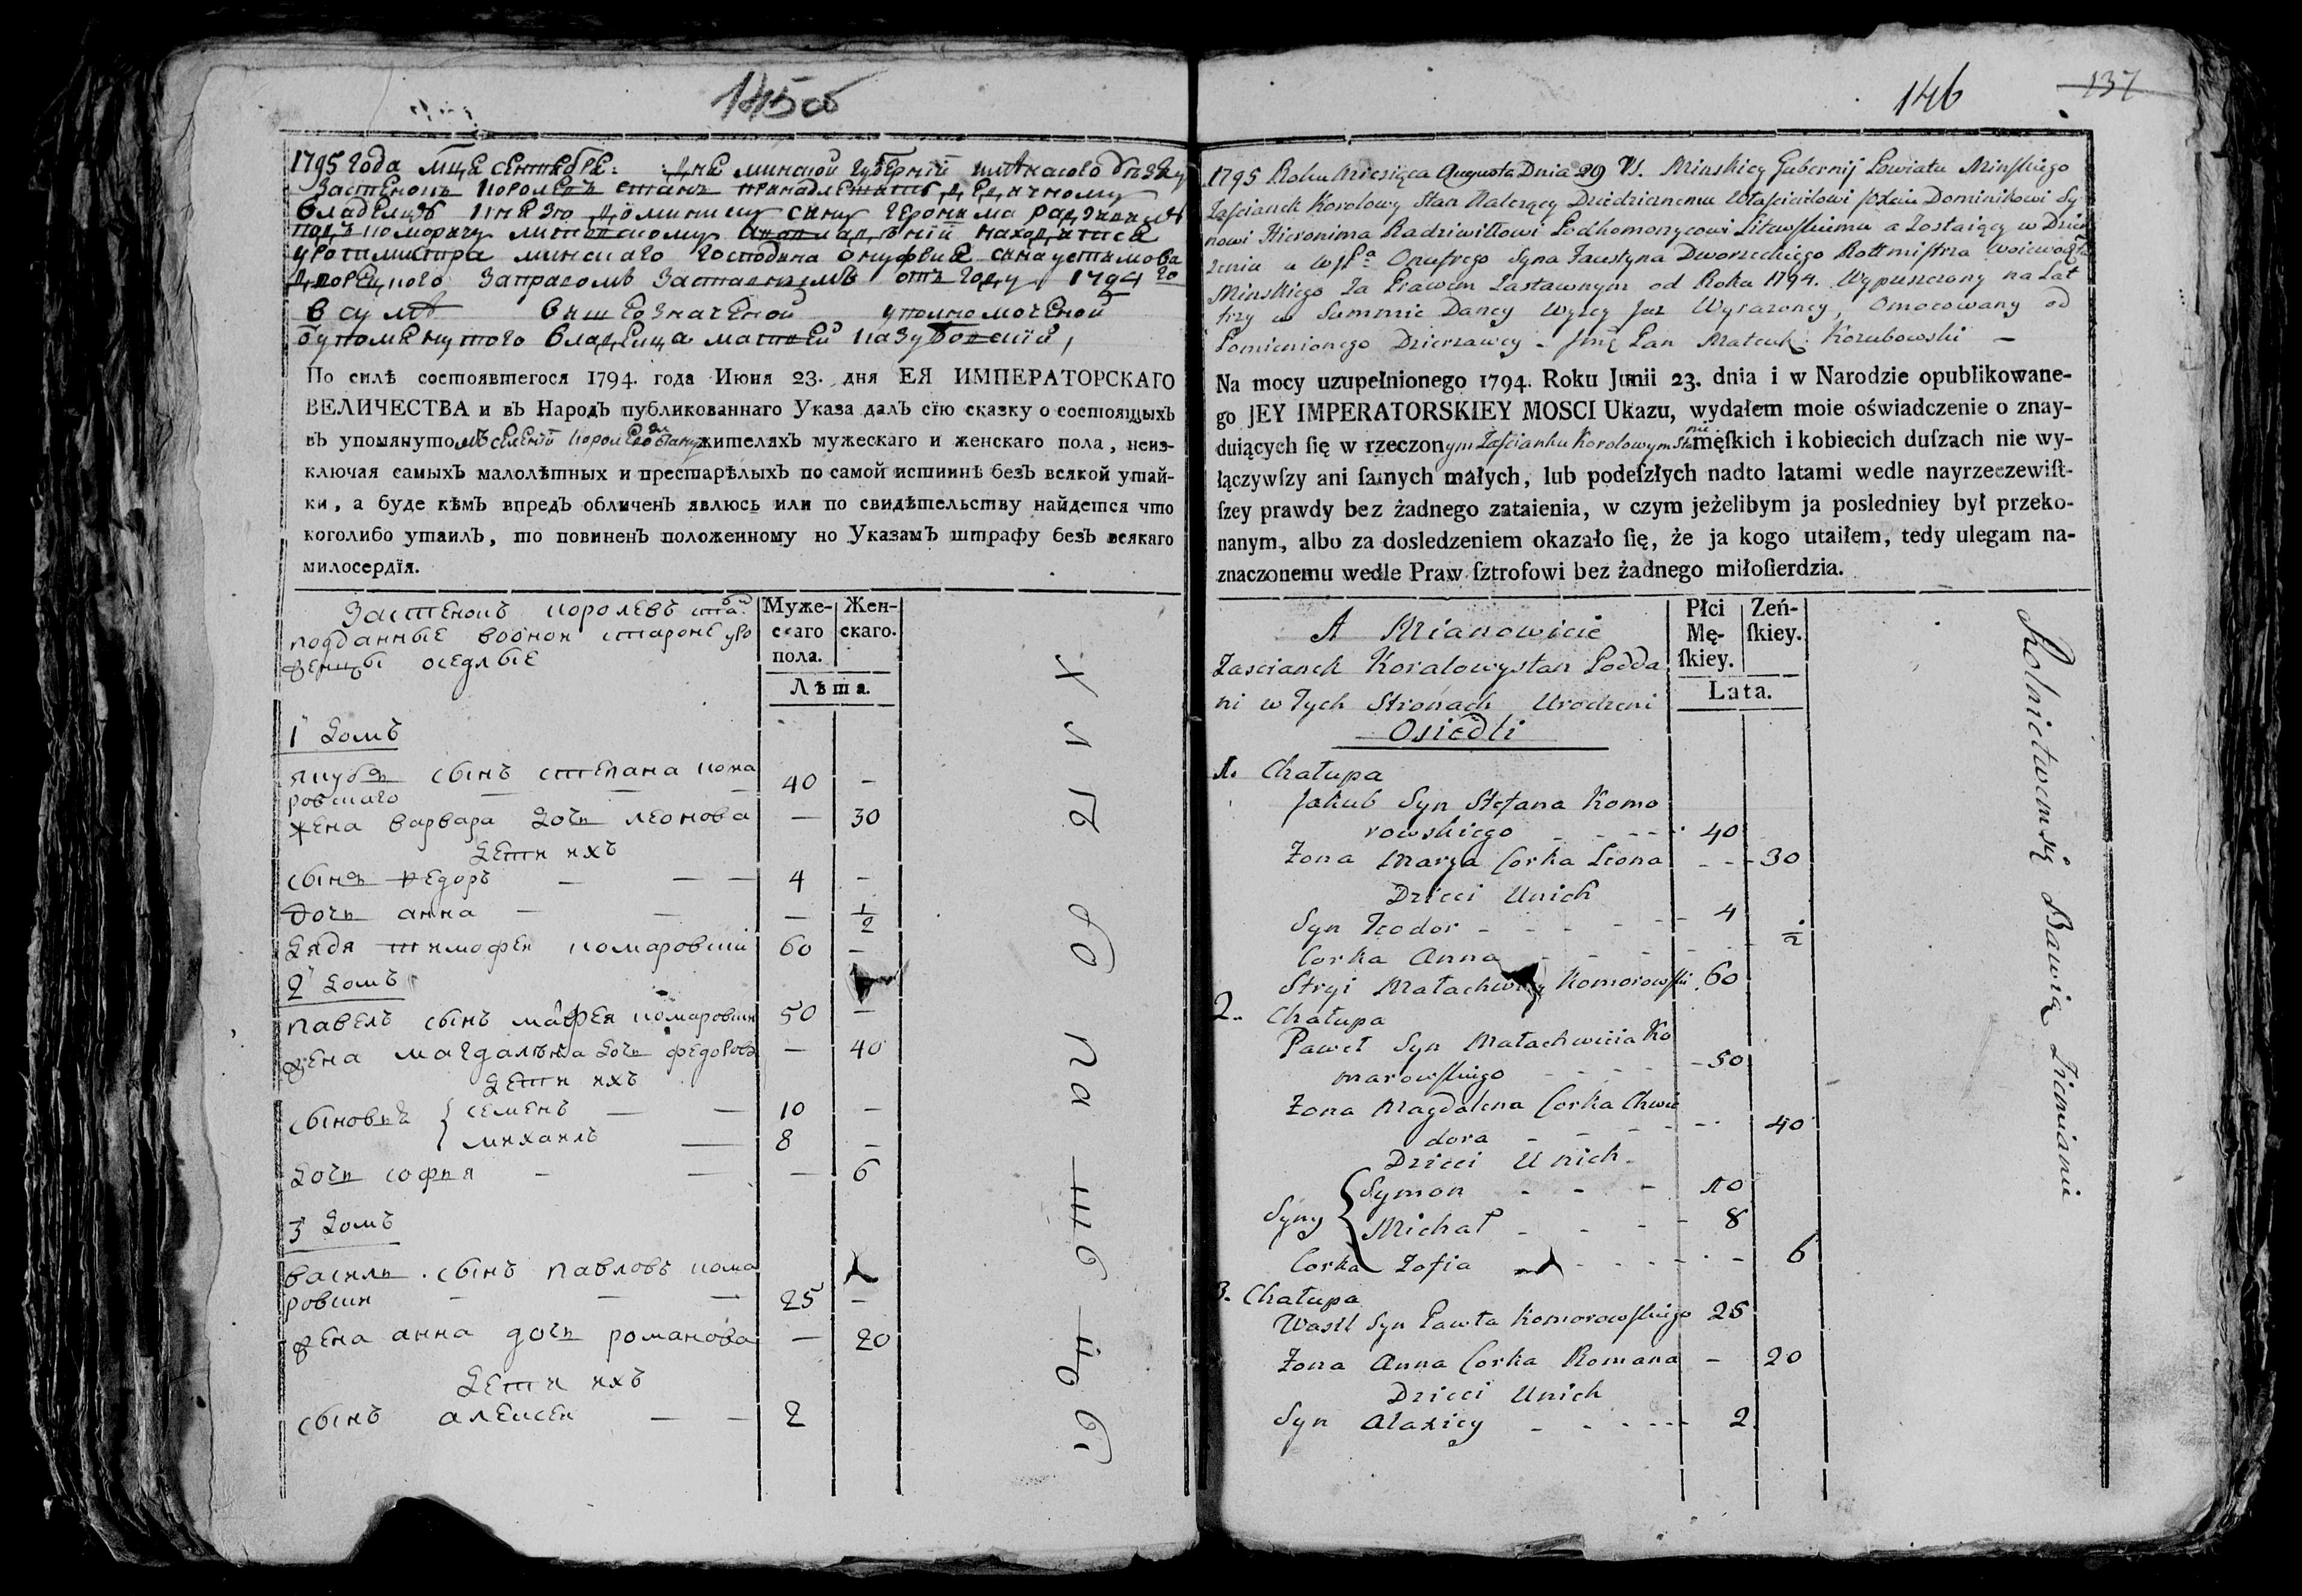 145об
1795 года мца сентября: дня минской губернїи минскаго округу
Застенокъ королевъ станъ принадлежитъ дедичному
владельцу князю доминику сыну Геронима радзивилу
подкоморому литовскому а во владѣнїи находитса
у ротмистра минскаго господина онуфрия сына устинова
дворецкого за правомъ заставнымъ отъ году 1794 го
в сумѣ вышеозначеной уполномоченой
Ѿупомянутого владельца матвей казубовскїй,
По силѣ состоявшегося 1794. года Июня 23. дня ЕЯ ИМПЕРАТОРСКАГО
ВЕЛИЧЕСТВА и въ Народъ публикованнаго Указа далъ сїю сказку о состоящыхъ
въ упомянутомъ селенїй королевостану жителяхъ мужескаго и женскаго пола, неиз-
ключая самыхъ малолѣтных и престарѣлыхъ по самой истиннѣ безъ всякой утай-
ки, а буде кѣмъ впредъ обличенъ явлюсь или по свидѣтельству найдется что
коголибо утаилъ, то повиненъ положенному по Указамъ штрафу безъ всякаго
милосердїя.
Застенокъ королевъ станъ
подданные воонон стороне уро
женцы оседлые
Муже-
скаго
пола.
Жен-
скаго.
Лѣта.
1 домъ
якубъ сынъ степана кома
ровскаго — — — 40 —
жена варвара дочь леонова — 30
дети ихъ
сынъ федоръ — — — 4 —
дочь анна — — — 1/2
дядя тимофей комаровский 60 —
2 домъ
павелъ сынъ матфея комаровский 50 —
жена магдалѣна дочь федорова — 40
дети ихъ
сыновья { семенъ — — 10 —
михаилъ — 8 —
дочь софия — — — 6
3 домъ
василь сынъ павловъ кома
ровский — — — 25 —
жена анна дочь романова — 20
дети ихъ
сынъ алексей — — 2
146
137
1795 Roku Miesiąca Augusta Dnia 29 VS. Minskiey Gubernij Powiatu Minſkiego
Zaſcianek Korolowy Stan Należący Dziedzicznemu Właſcicilowi Xżciu Dominikowi Sy
nowi Hieronima Radziwiłłowi Podkomorzycowi Litewſkiemu a Zostaiący w Dzier
żeniu u WJPa Onufrego Syna Faustyna Dworzeckiego Rottmiſtrza Woiewodztwa
Minskiego Za Prawem Zastawnym od Roku 1794. Wypuszczony na Lat
trzy w Summie Daney Wyżey Już Wyrażoney, Omocowany od
Pomienionego Dzierżawcy - Jmć Pan Mateusz Kozubowski —
Na mocy uzupełnionego 1794. Roku Junii 23. dnia i w Narodzie opublikowane-
go JEY IMPERATORSKIEY MOSCI Ukazu, wydałem moie oświadczenie o znay-
duiących ſię w rzeczonym Zaſcianku Korolowym Stanie męſkich i kobiecich duſzach nie wy-
łączywſzy ani ſamych małych, lub podeſzłych nadto latami wedle nayrzeczewiſt-
ſzey prawdy bez żadnego zataienia, w czym jeżelibym ja posledniey był przeko-
nanym, albo za dosledzeniem okazało ſię, że ja kogo utaiłem, tedy ulegam na-
znaczonemu wedle Praw ſztrofowi bez żadnego miłoſierdzia.
A Mianowicie
Zascianek Koralowystan Podda
ni w Tych Stronach Urodzeni
Osiedli
Płci
Mę-
ſkiey.
Zeń-
ſkiey.
Lata.
1. Chałupa
Jakub Syn Stefana Komo
rowskiego - - - - 40
Zona Marya Corka Leona - - - 30
Dzieci Unich
Syn Teodor - - - - 4
Corka Anna - - - 1/2
Stryi Małachwiey Komorowſki 60
2. Chałupa
Paweł Syn Małachwieia Ko
marowſkiego - - - - 50
Zona Magdalena Corka Chwie
dora - - - - 40
Dzieci Unich.
Syny { Symon - - - 10
Michał - - - 8
Corka Zofia - - - - 6
3. Chałupa
Wasil Syn Pawła Komorowſkiego 25
Zona Anna Corka Romana - 20
Dzieci Unich
Syn Ałaxiey - - - - 2
Rolnictwem się Bawią Ziemianie